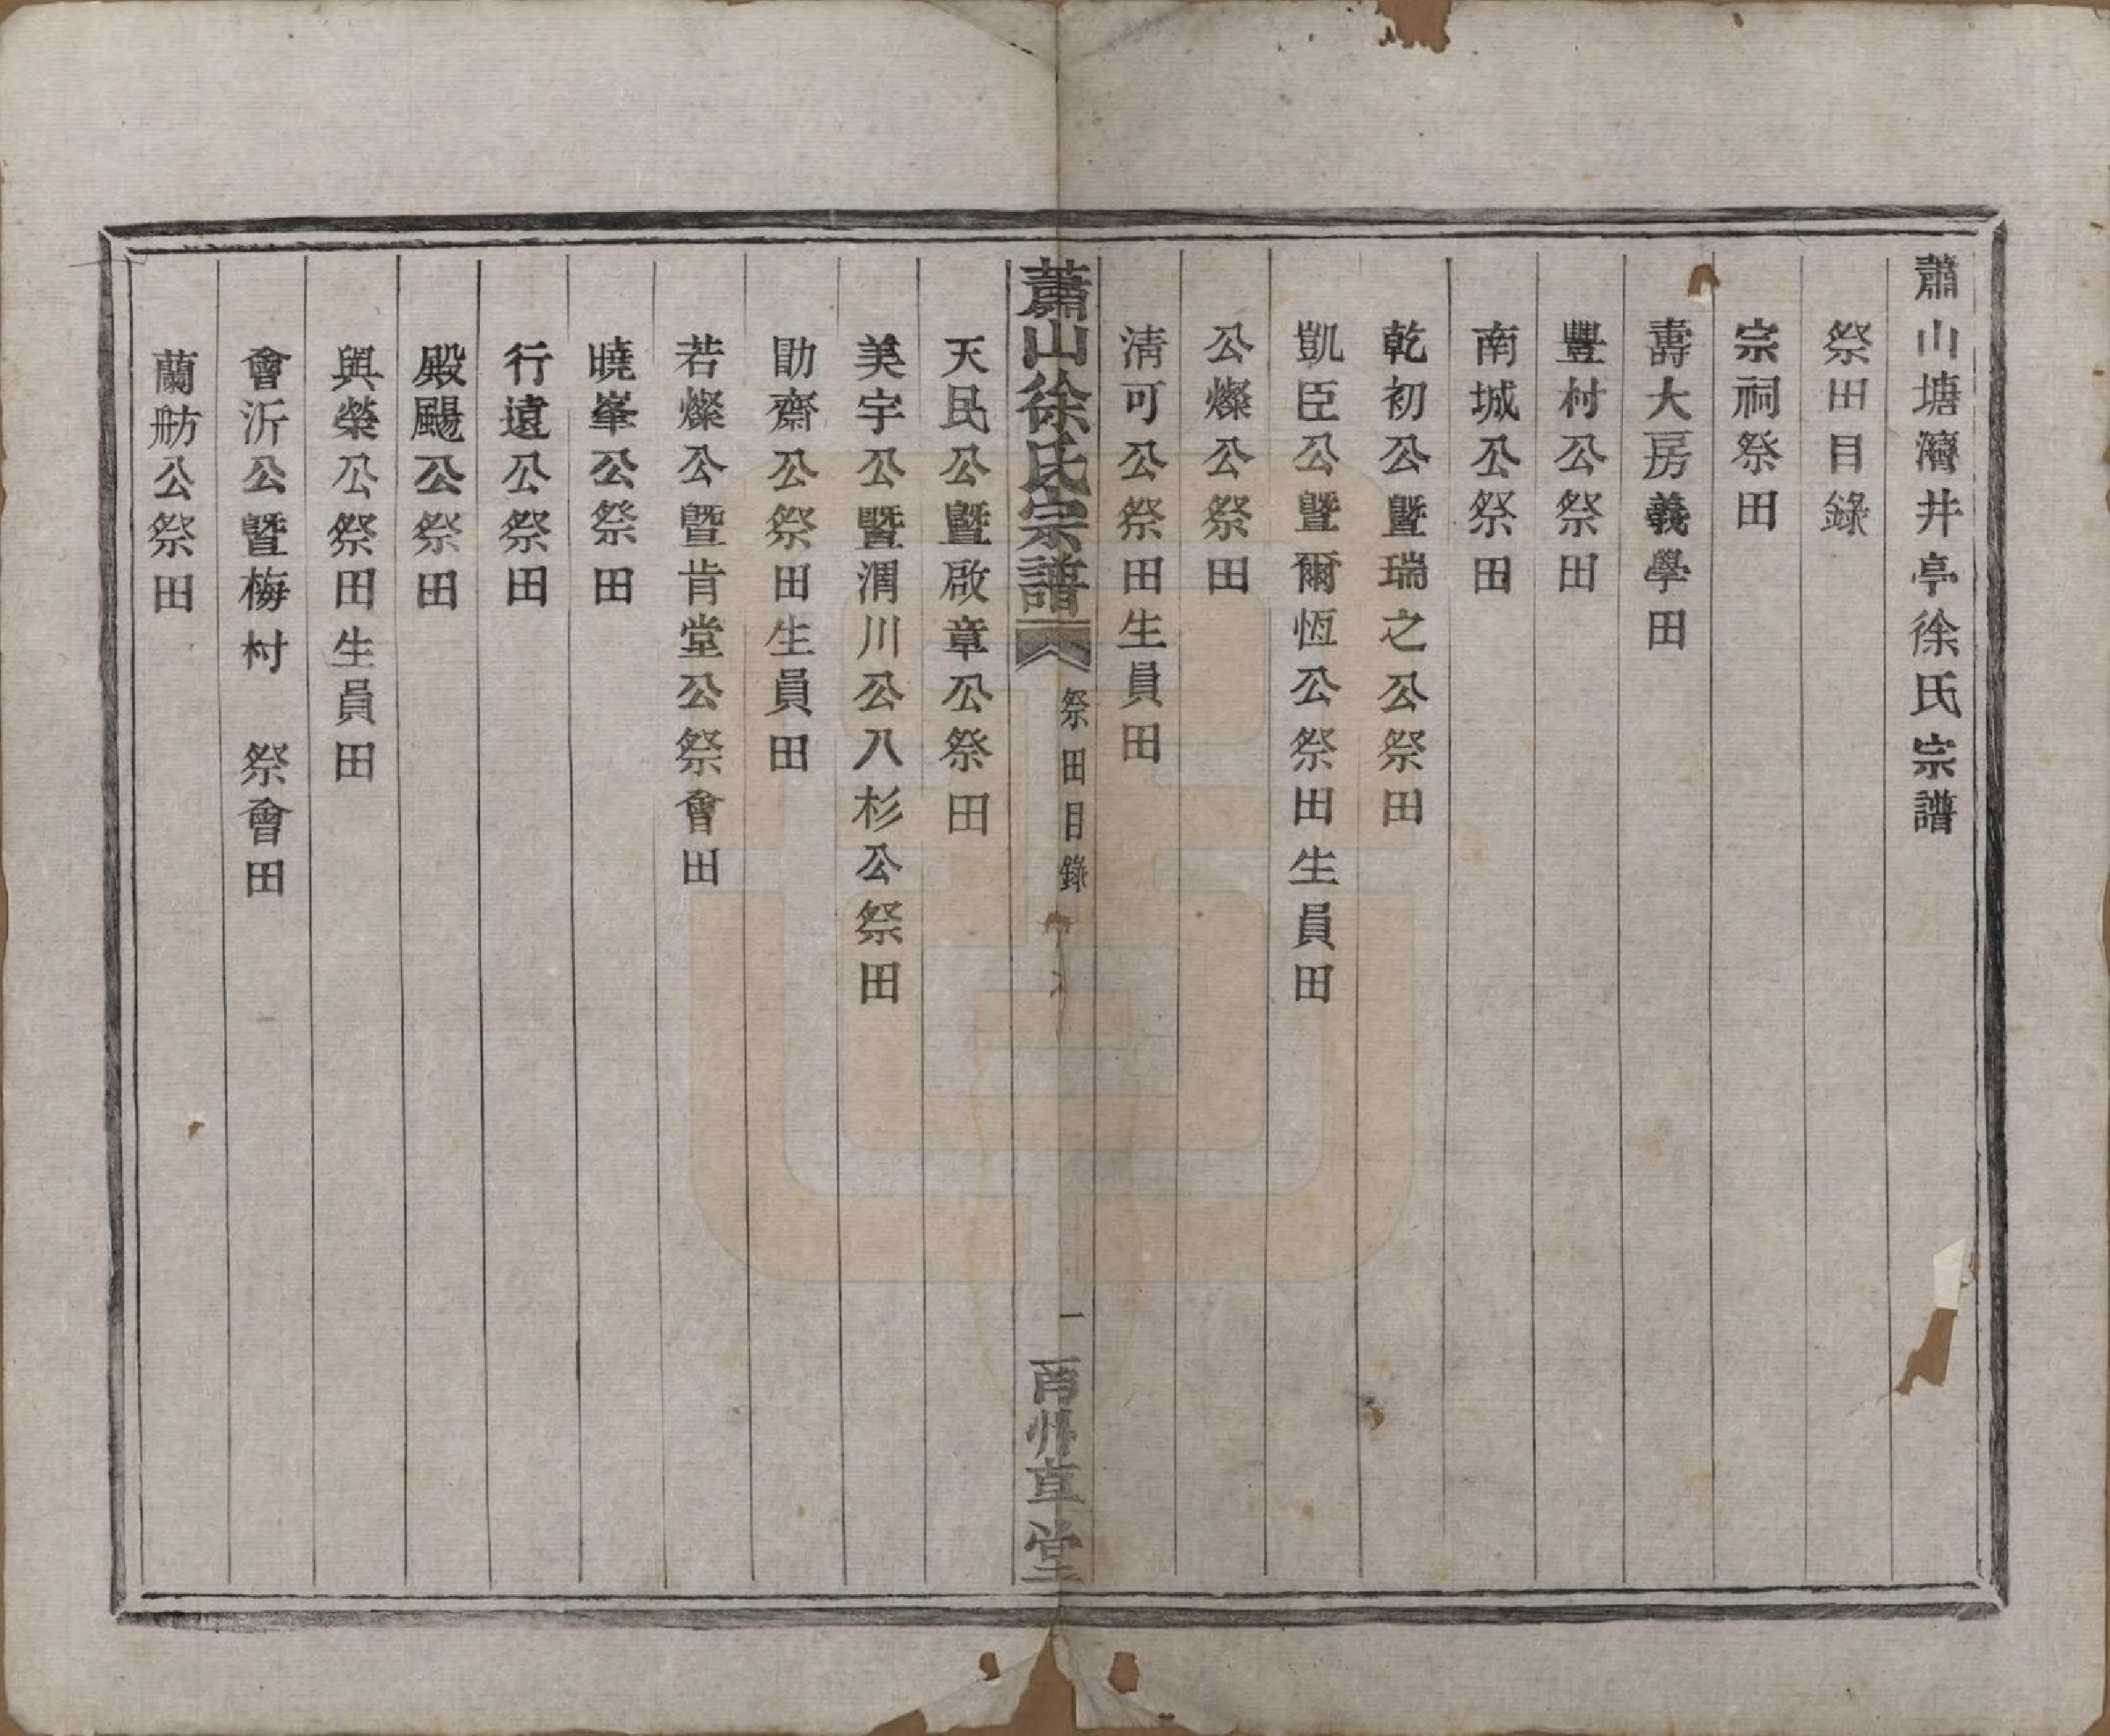 蕭山塘灣井亭徐氏宗譜
祭田目錄
宗祠祭田
壽大房義學田
豐村公祭田
南城公祭田
乾初公暨瑞之公祭田
凱臣公暨爾恆公祭田生員田
公燦公祭田
清可公祭田生員田
蕭山徐氏宗譜 祭田目錄 一 南州草堂
天民公暨啟章公祭田
美宇公暨渭川公八杉公祭田
勖齋公祭田生員田
若燦公暨肯堂公祭會田
曉峯公祭田
行遠公祭田
殿颺公祭田
興榮公祭田生員田
會沂公暨梅村 祭會田
蘭舫公祭田